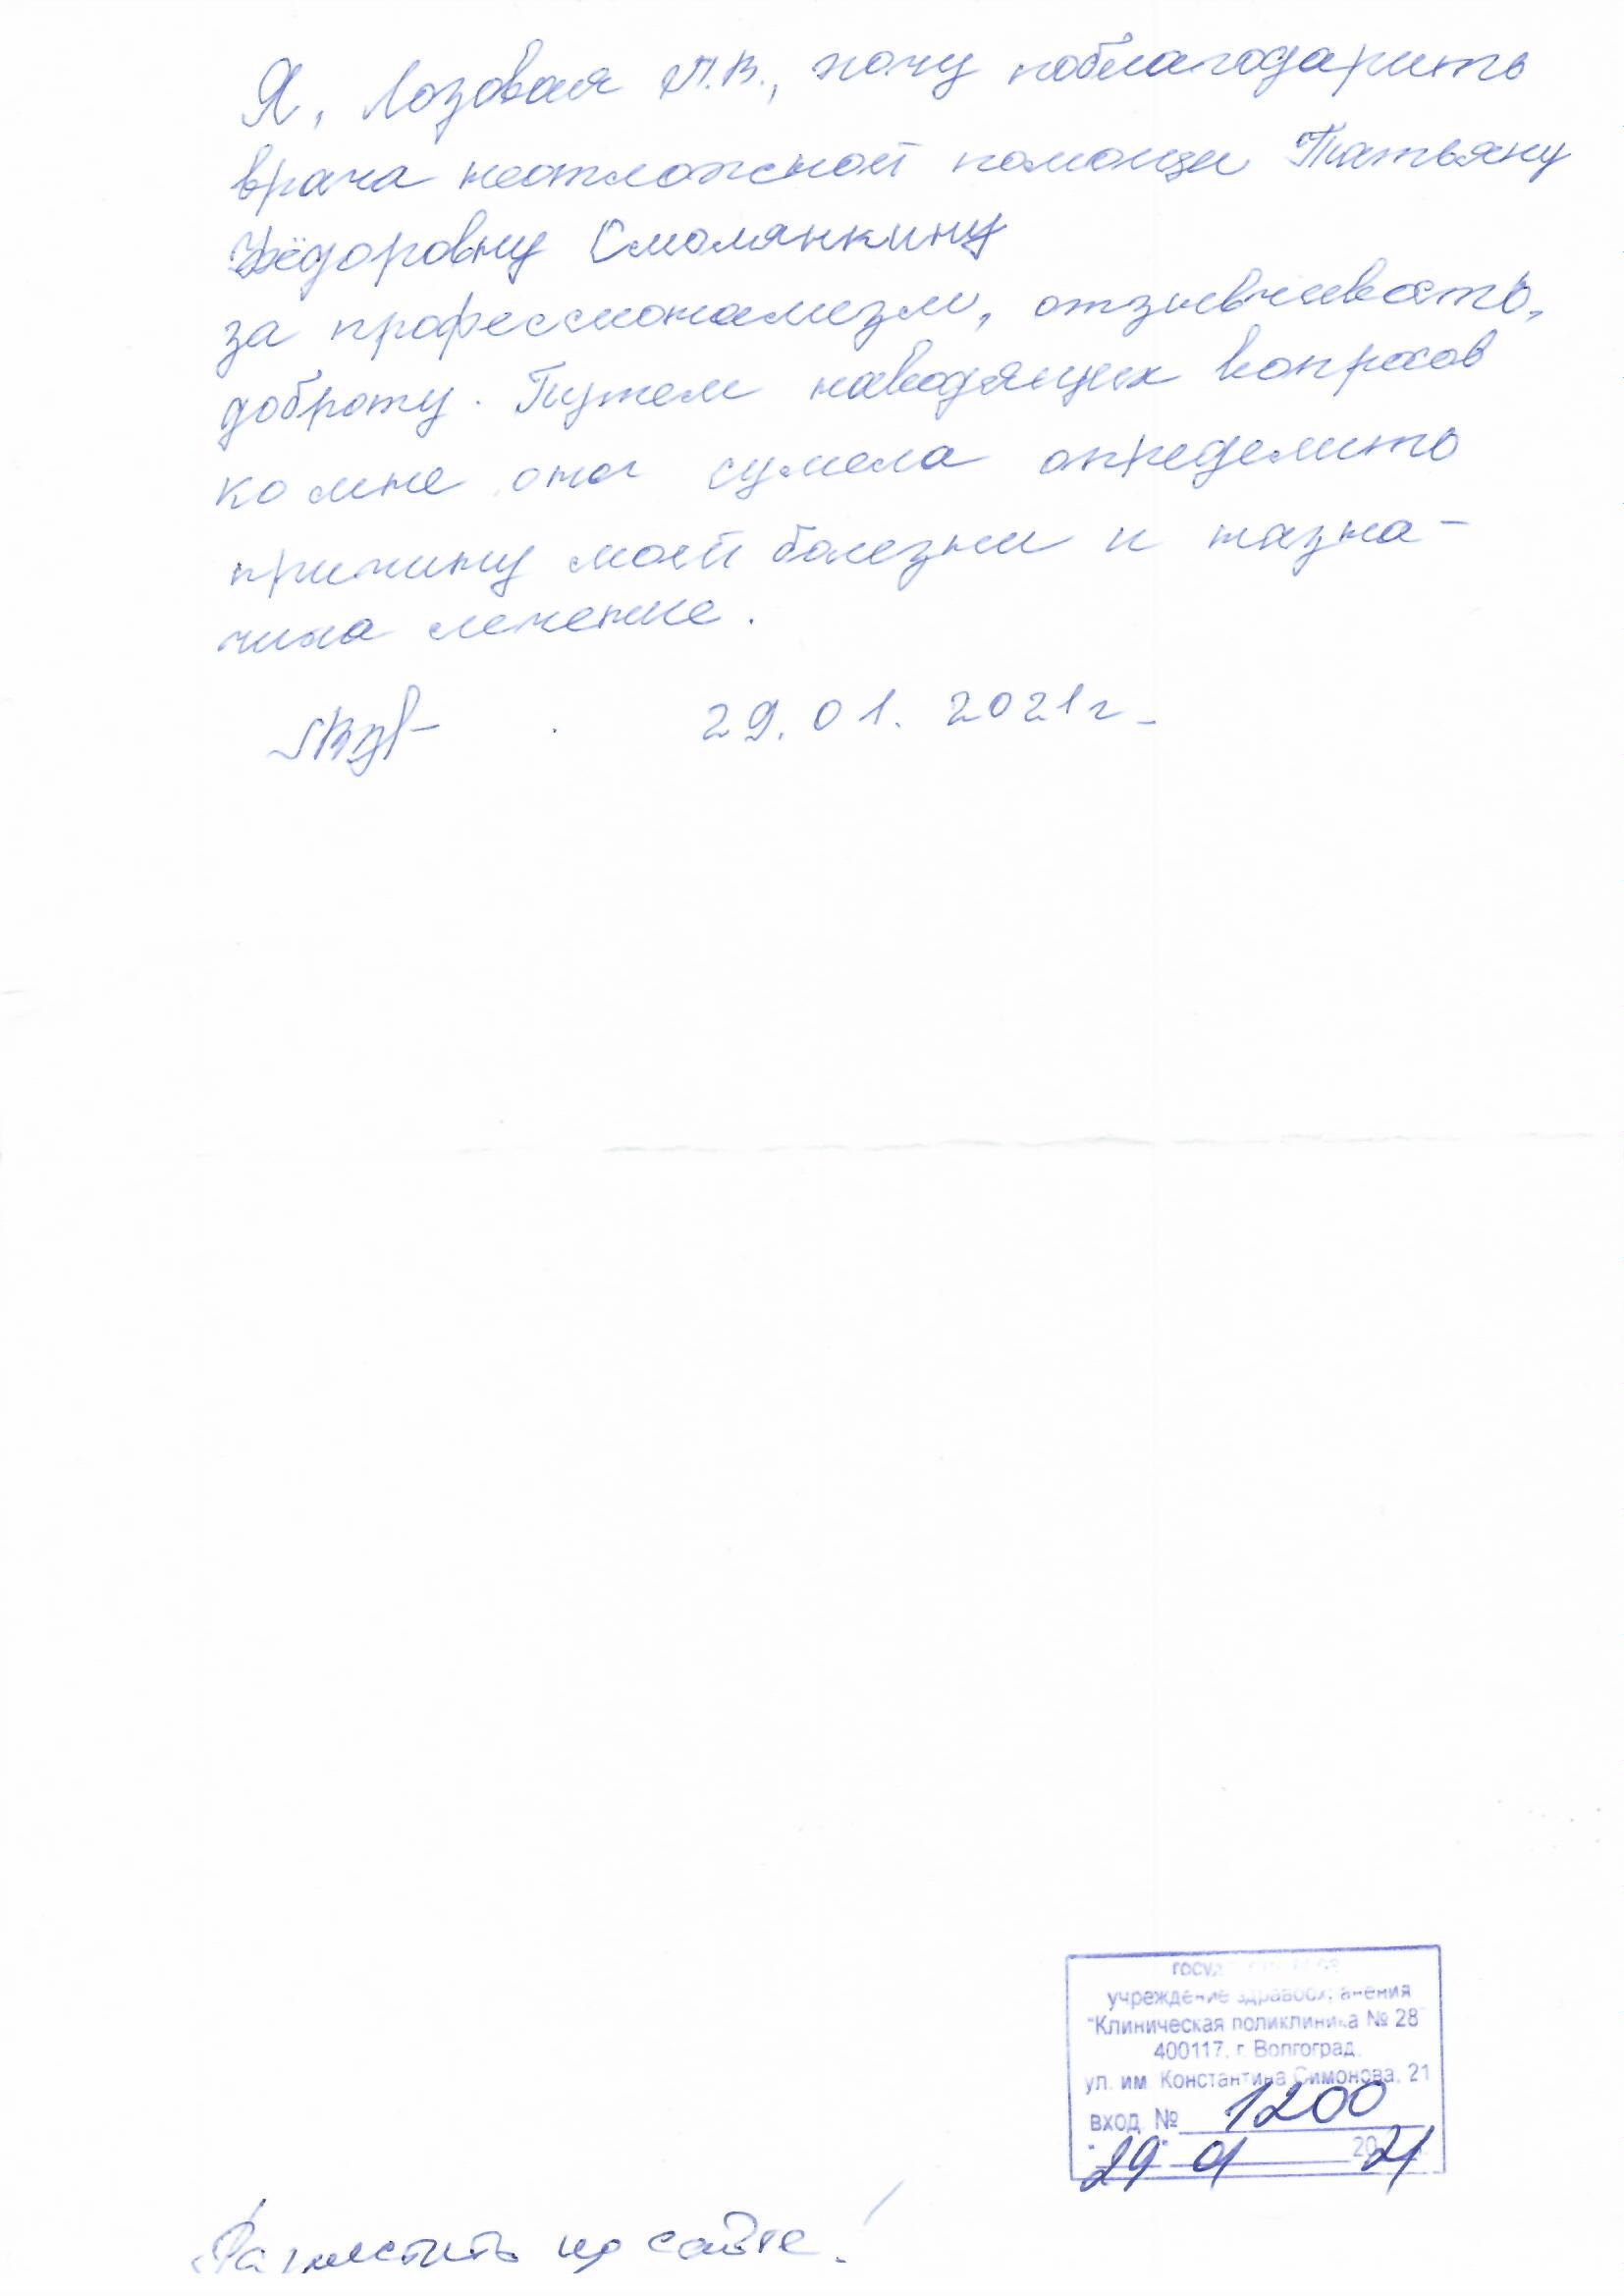 Я, Лозовая П.В., хочу поблагодарить
врача неотложной помощи Татьяну
Фёдоровну Смолянкину
за профессионализм, отзывчивость,
доброту. Путем наводящих вопросов
ко мне она сумела определить
причину моей болезни и назна-
чила лечение.
29.01.2021г.
учреждение здравоохранения
"Клиническая поликлиника № 28"
400117, г. Волгоград,
ул. им. Константина Симонова, 21
вход. № 1200
"29" 01 2021
Разместить на сайте!